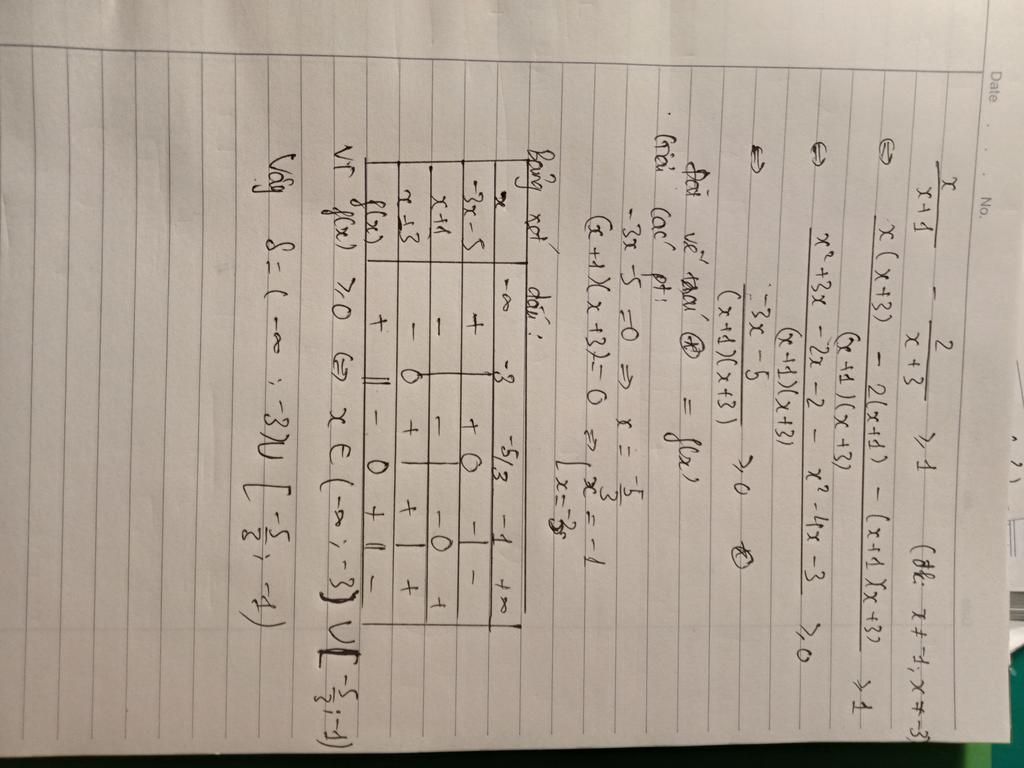 Date No.
x/(x+1) - 2/(x+3) ≥ 1 (đk: x ≠ -1, x ≠ -3)
⇔ (x(x+3) - 2(x+1) - (x+1)(x+3))/((x+1)(x+3)) ≥ 1
⇔ (x² + 3x - 2x - 2 - x² - 4x - 3)/((x+1)(x+3)) ≥ 0
⇔ (-3x - 5)/((x+1)(x+3)) ≥ 0 (*)
Đặt vế trái (*) = f(x)
Giải các pt:
-3x - 5 = 0 ⇒ x = -5/3
(x+1)(x+3) = 0 ⇒ [x = -1
[x = -3
Bảng xét dấu:
x | -∞ -3 -5/3 -1 +∞
-3x-5 | + | + 0 - | -
x+1 | - | - | - 0 +
x+3 | - 0 + | + | +
f(x) | + || - 0 + || -
Vì f(x) ≥ 0 ⇔ x ∈ (-∞; -3) ∪ [-5/3; -1)
Vậy S = (-∞; -3) ∪ [-5/3; -1)